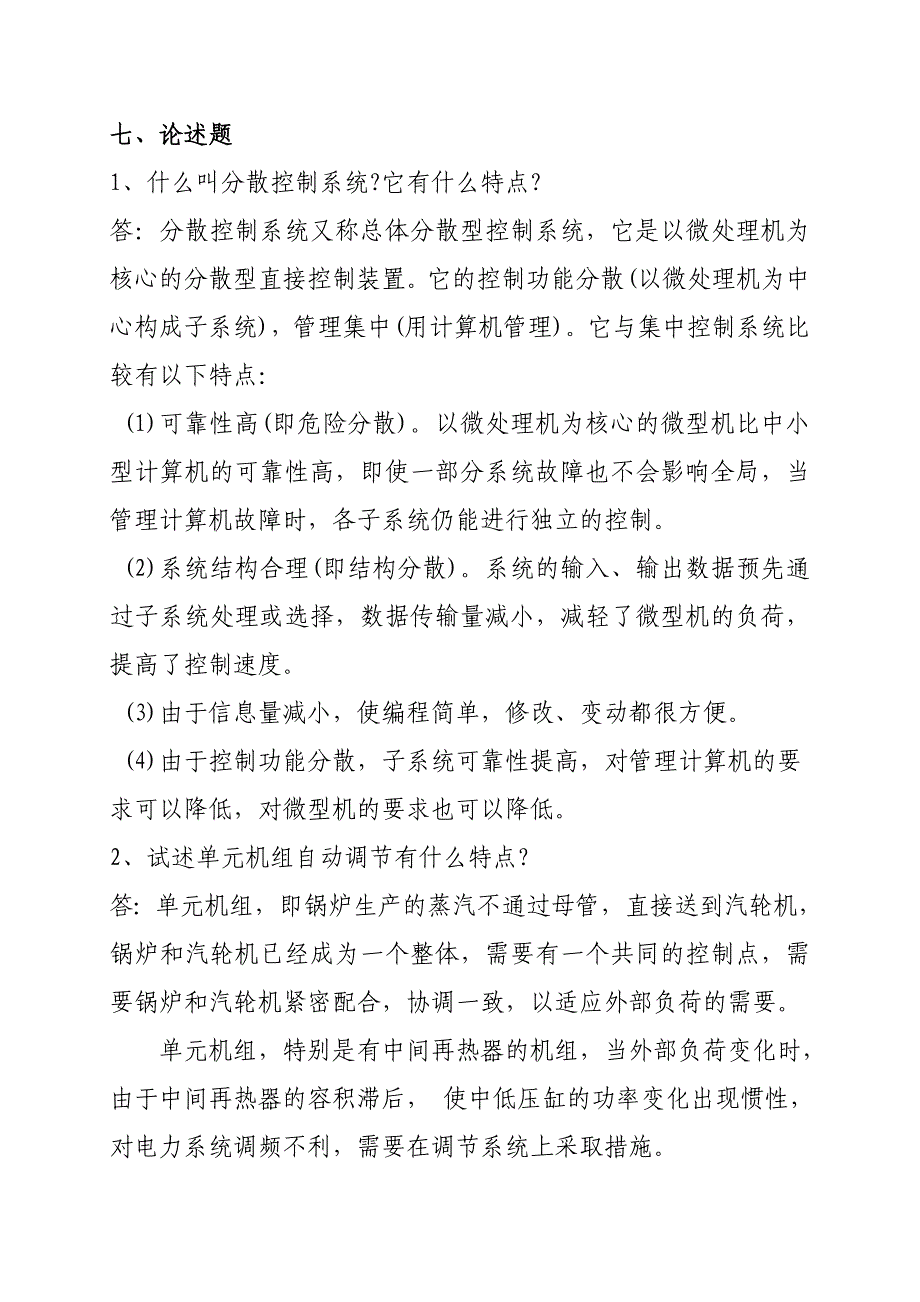 七、论述题
1、什么叫分散控制系统?它有什么特点?
答: 分散控制系统又称总体分散型控制系统，它是以微处理机为
核心的分散型直接控制装置。它的控制功能分散(以微处理机为中
心构成子系统)，管理集中(用计算机管理)。它与集中控制系统比
较有以下特点:
(1)可靠性高(即危险分散)。以微处理机为核心的微型机比中小
型计算机的可靠性高，即使一部分系统故障也不会影响全局，当
管理计算机故障时，各子系统仍能进行独立的控制。
(2)系统结构合理(即结构分散)。系统的输入、输出数据预先通
过子系统处理或选择，数据传输量减小，减轻了微型机的负荷，
提高了控制速度。
(3)由于信息量减小，使编程简单，修改、变动都很方便。
(4)由于控制功能分散，子系统可靠性提高，对管理计算机的要
求可以降低，对微型机的要求也可以降低。
2、试述单元机组自动调节有什么特点?
答: 单元机组，即锅炉生产的蒸汽不通过母管，直接送到汽轮机，
锅炉和汽轮机已经成为一个整体，需要有一个共同的控制点，需
要锅炉和汽轮机紧密配合，协调一致，以适应外部负荷的需要。
单元机组，特别是有中间再热器的机组，当外部负荷变化时，
由于中间再热器的容积滞后， 使中低压缸的功率变化出现惯性，
对电力系统调频不利，需要在调节系统上采取措施。